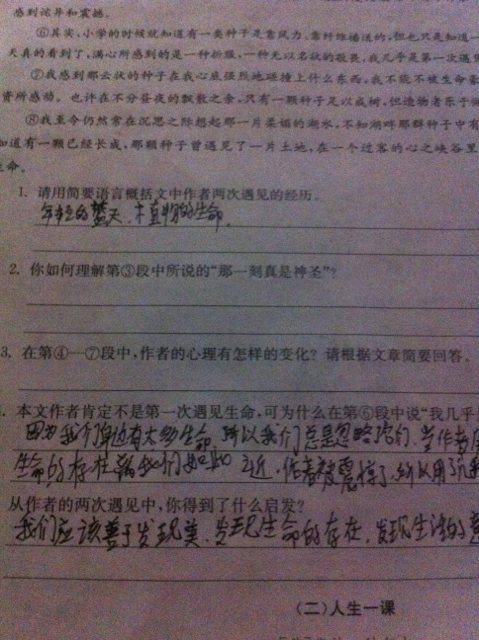 感到诧异和震撼。
⑥其实,小学的时候就知道有一类种子是靠风力,靠纤维播送的,但也只是知道一
天真的看到了,满心所感到的是一种折服,一种无以名状的敬畏,我几乎是第一次遇见
⑦我感到那云状的种子在我心底强烈地碰撞上什么东西,我不能不被生命豪
资所感动。也许在不分昼夜的飘散之余,只有一颗种子足以成树,但造物者乐于做
⑧我至今仍然常在沉思之际想起那一片柔媚的湖水,不知湖畔那群种子中有
知道有一颗已经长成,那颗种子曾遇见了一片土地,在一个过客的心之峡谷里
生命。
1. 请用简要语言概括文中作者两次遇见的经历。
年轻的 植物的生命
2. 你如何理解第③段中所说的“那一刻真是神圣”?
3. 在第④—⑦段中,作者的心理有怎样的变化? 请根据文章简要回答。
. 本文作者肯定不是第一次遇见生命,可为什么在第⑥段中说“我几乎
因为我们身边有太多生命,所以我们总是忽略它们,当作者
生命的存在 我们如此 近,作者被震撼了,所以用
从作者的两次遇见中,你得到了什么启发?
我们应该善于发现美,发现生命的存在,发现生活的
(二)人生一课